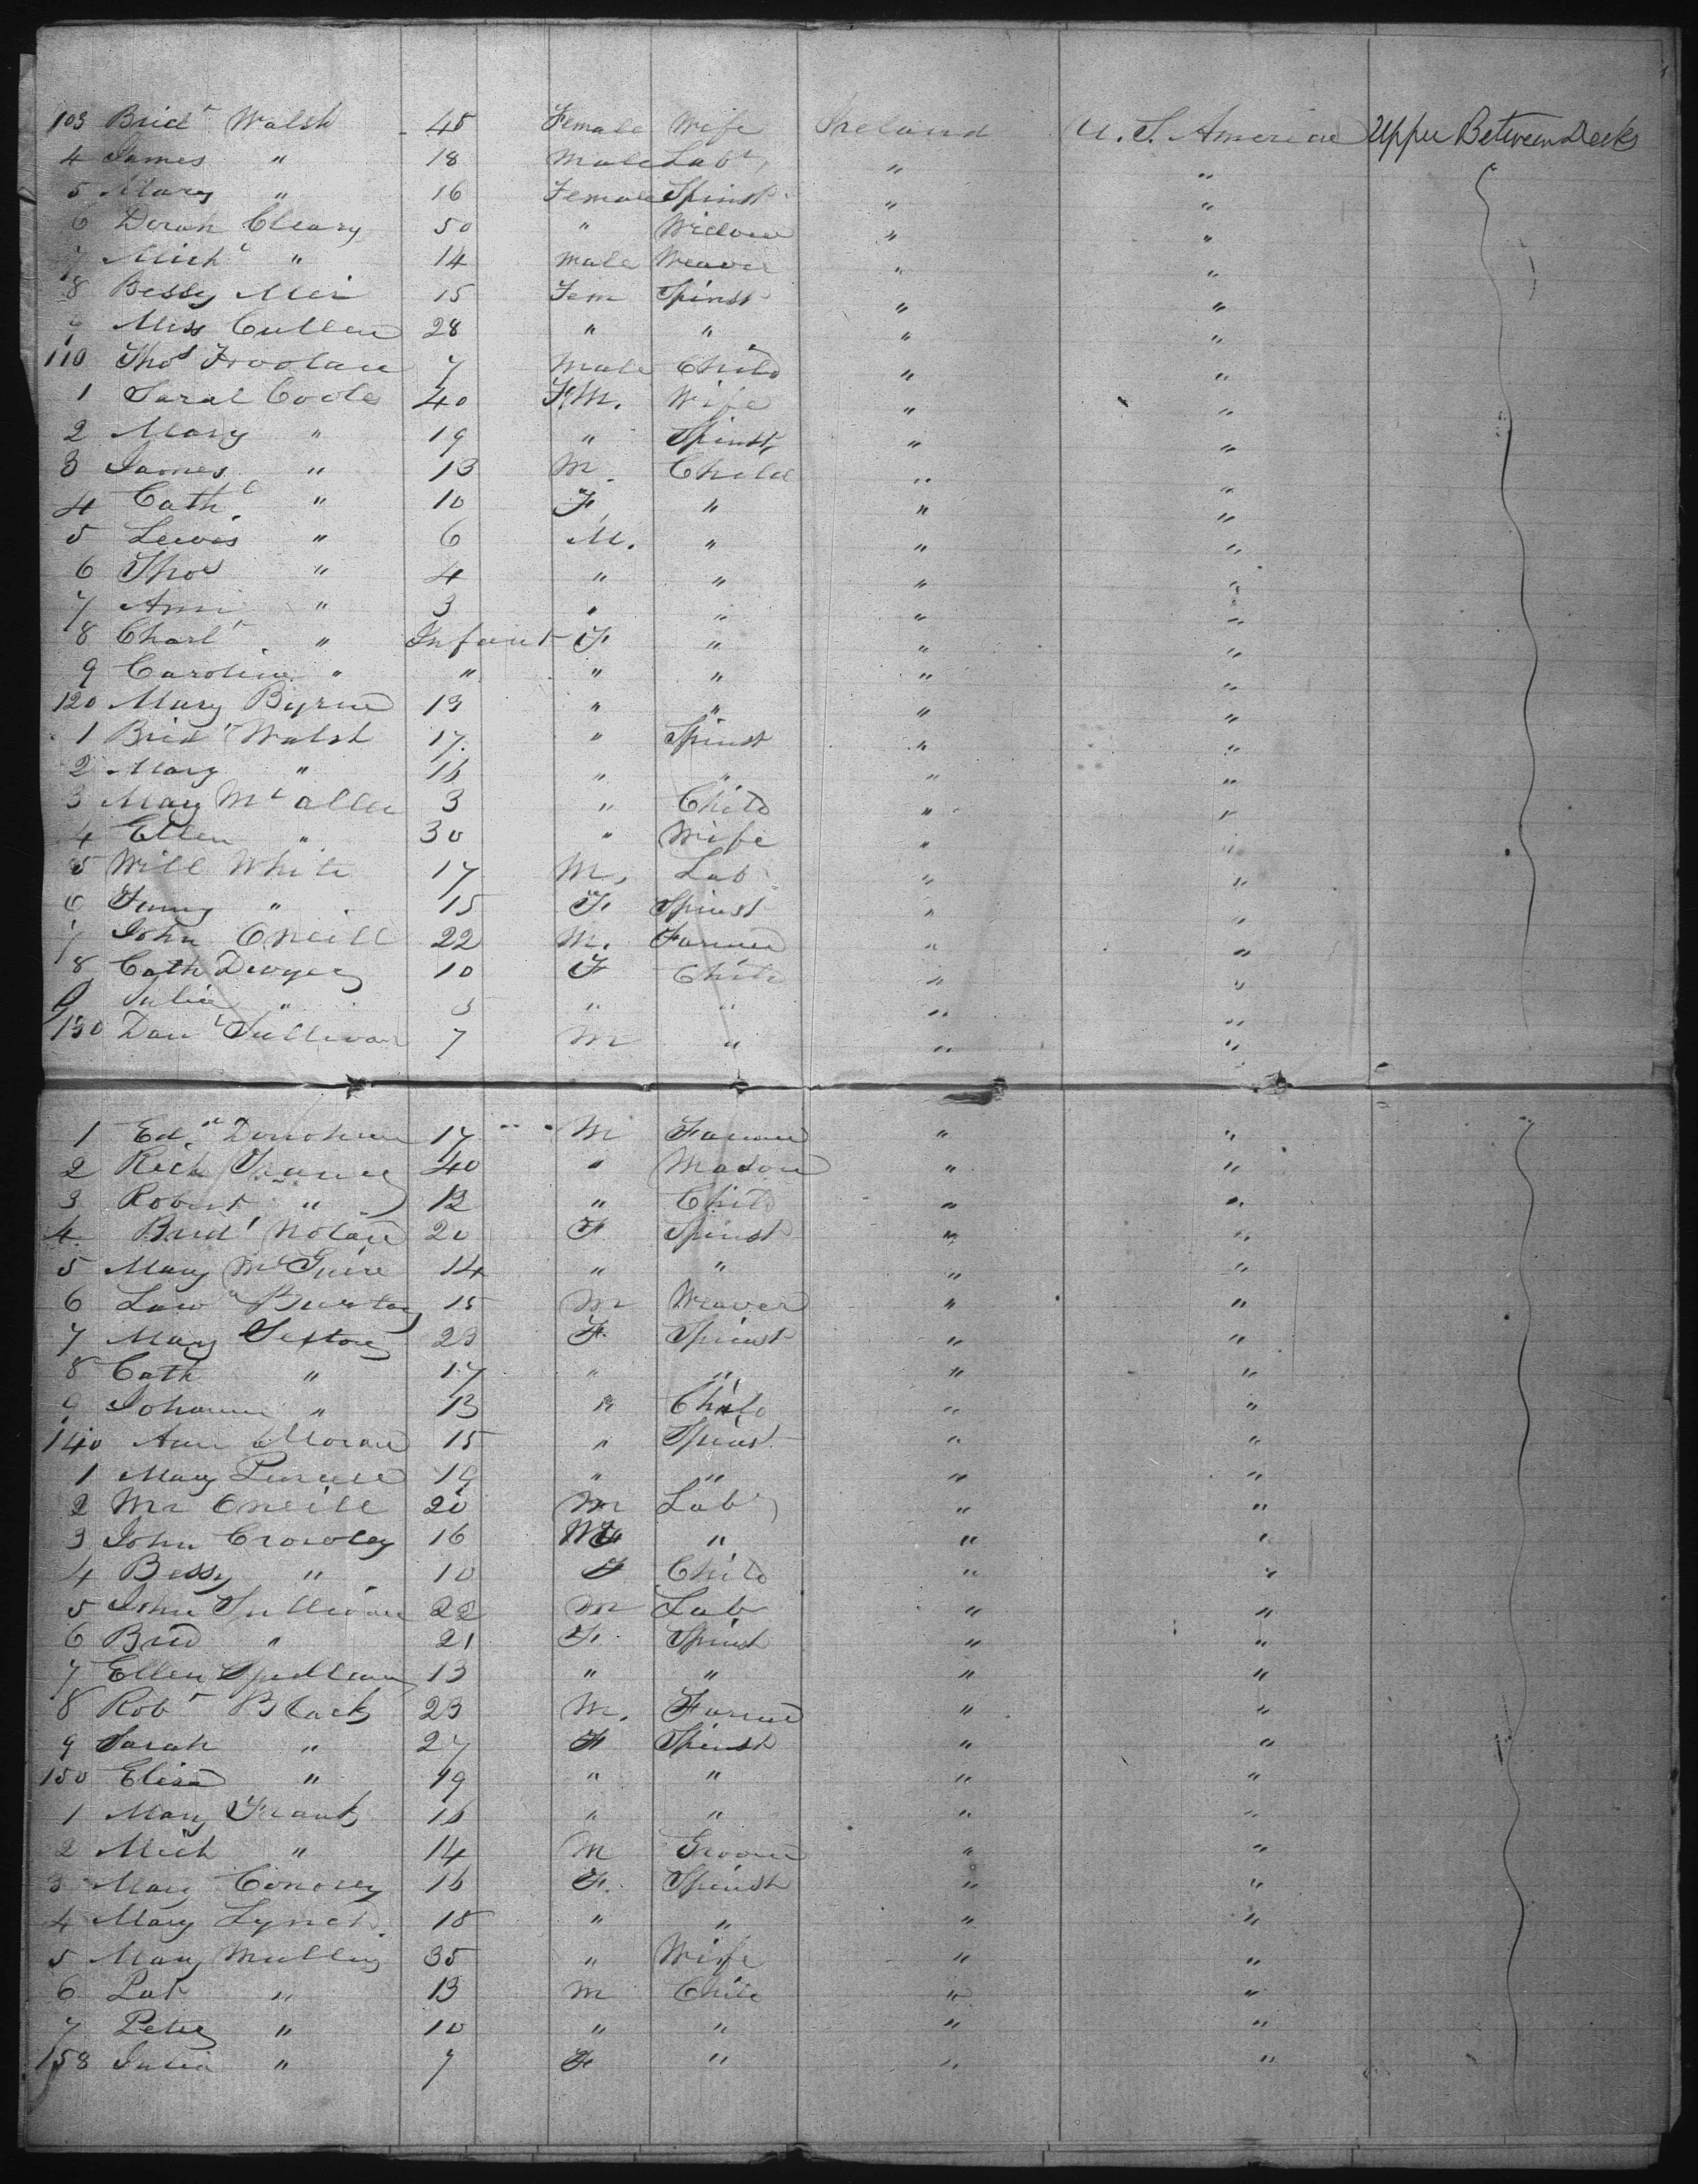 103 Bridt Walsh 45 Female Wife Ireland U. S. America Upper Between Decks
4 James " 18 Male Labr " "
5 Mary " 16 Female Spinst " "
6 Dorah Cleary 50 " Widow " "
7 Michl " 14 Male Weaver " "
8 Bessy 15 Fem Spinst " "
9 Miss Cullen 28 " " " "
110 Thos 7 Male Child " "
1 Sarah Coole 40 F.M. Wife " "
2 Mary " 19 " Spinst " "
3 James " 13 M. Child " "
4 Cathe " 10 F. " " "
5 Lewis " 6 M. " " "
6 Thos " 4 " " " "
7 Ann " 3 " " " "
8 Charlt " Infant F " " "
9 Caroline " " " " " "
120 Mary Byrne 13 " " " "
1 Bridt Walsh 17 " Spinst " "
2 Mary " 16 " " " "
3 Mary Mc 3 " Child " "
4 Ellen " 30 " Wife " "
5 Will White 17 M. Lab " "
6 Fanny " 15 F Spinst " "
7 John ONeill 22 M. Farmer " "
8 Cath Dwyer 10 F Child " "
9 Julia " " " " "
130 Danl Sullivan 7 M " " "
1 Edd Donohue 17 M Farmer " "
2 Rich 40 " Mason " "
3 Robert " 12 " Child " "
4 Bridt Nolan 20 F Spinst " "
5 Mary McGuire 14 " " " "
6 15 M Weaver " "
7 Mary Sexton 23 F. Spinst " "
8 Cath " 17 " " " "
9 Johanna " 13 " Child " "
140 Ann Moran 15 " Spinst " "
1 Mary 19 " " " "
2 Mr ONeill 20 M Labr " "
3 John Crowley 16 M " " "
4 Bessy " 10 F Child " "
5 John Sullivan 22 M Lab " "
6 Brid " 21 F. Spinst " "
7 Ellen Spellman 13 " " " "
8 Robt Black 23 M. Farmer " "
9 Sarah " 27 F Spinst " "
150 Eliza " 19 " " " "
1 Mary Frank 16 " " " "
2 Mich " 14 M Groom " "
3 Mary Conovey 16 F. Spinst " "
4 Mary Lynch 18 " " " "
5 Mary Mullin 35 " Wife " "
6 Pat " 13 M Child " "
7 Peter " 10 " " " "
158 Julia " 7 F " " "